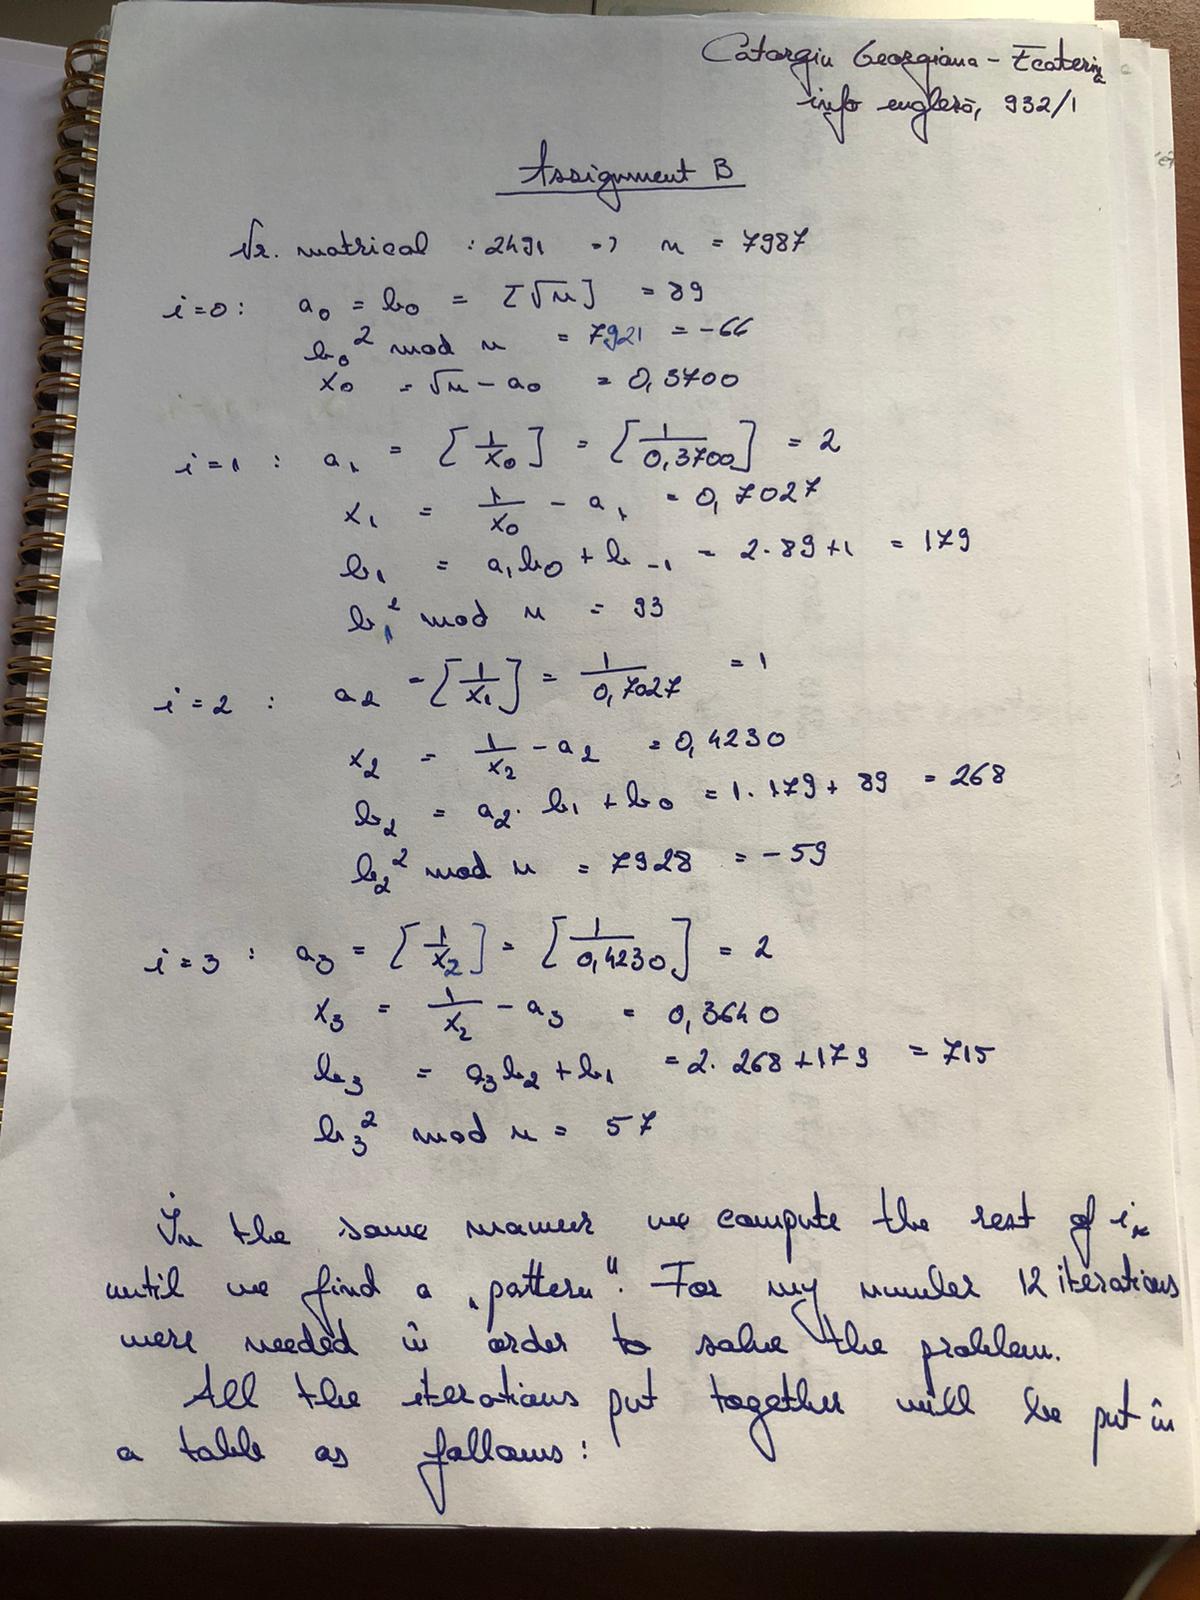 Catargiu Georgiana - Ecaterina
info engleză, 932/1
Assignment B
Nr. matricol : 2491 => n = 7987
i=0: a₀ = b₀ = [√n] = 89
b₀² mod n = 7921 = -66
x₀ = √n - a₀ = 0,3700
i=1 : a₁ = [1/x₀] = [1/0,3700] = 2
x₁ = 1/x₀ - a₁ = 0,7027
b₁ = a₁b₀ + b₋₁ = 2·89+1 = 179
b₁² mod n = 93
i=2 : a₂ = [1/x₁] = 1/0,7027 = 1
x₂ = 1/x₂ - a₂ = 0,4230
b₂ = a₂·b₁ + b₀ = 1·179 + 89 = 268
b₂² mod n = 7928 = -59
i=3 : a₃ = [1/x₂] = [1/0,4230] = 2
x₃ = 1/x₂ - a₃ = 0,3640
b₃ = a₃b₂ + b₁ = 2·268+179 = 715
b₃² mod n = 57
In the same manner we compute the rest of
until we find a „pattern". For my number 12 iterations
were needed in order to solve the problem.
All the iterations put together will be put in
a table as follows: